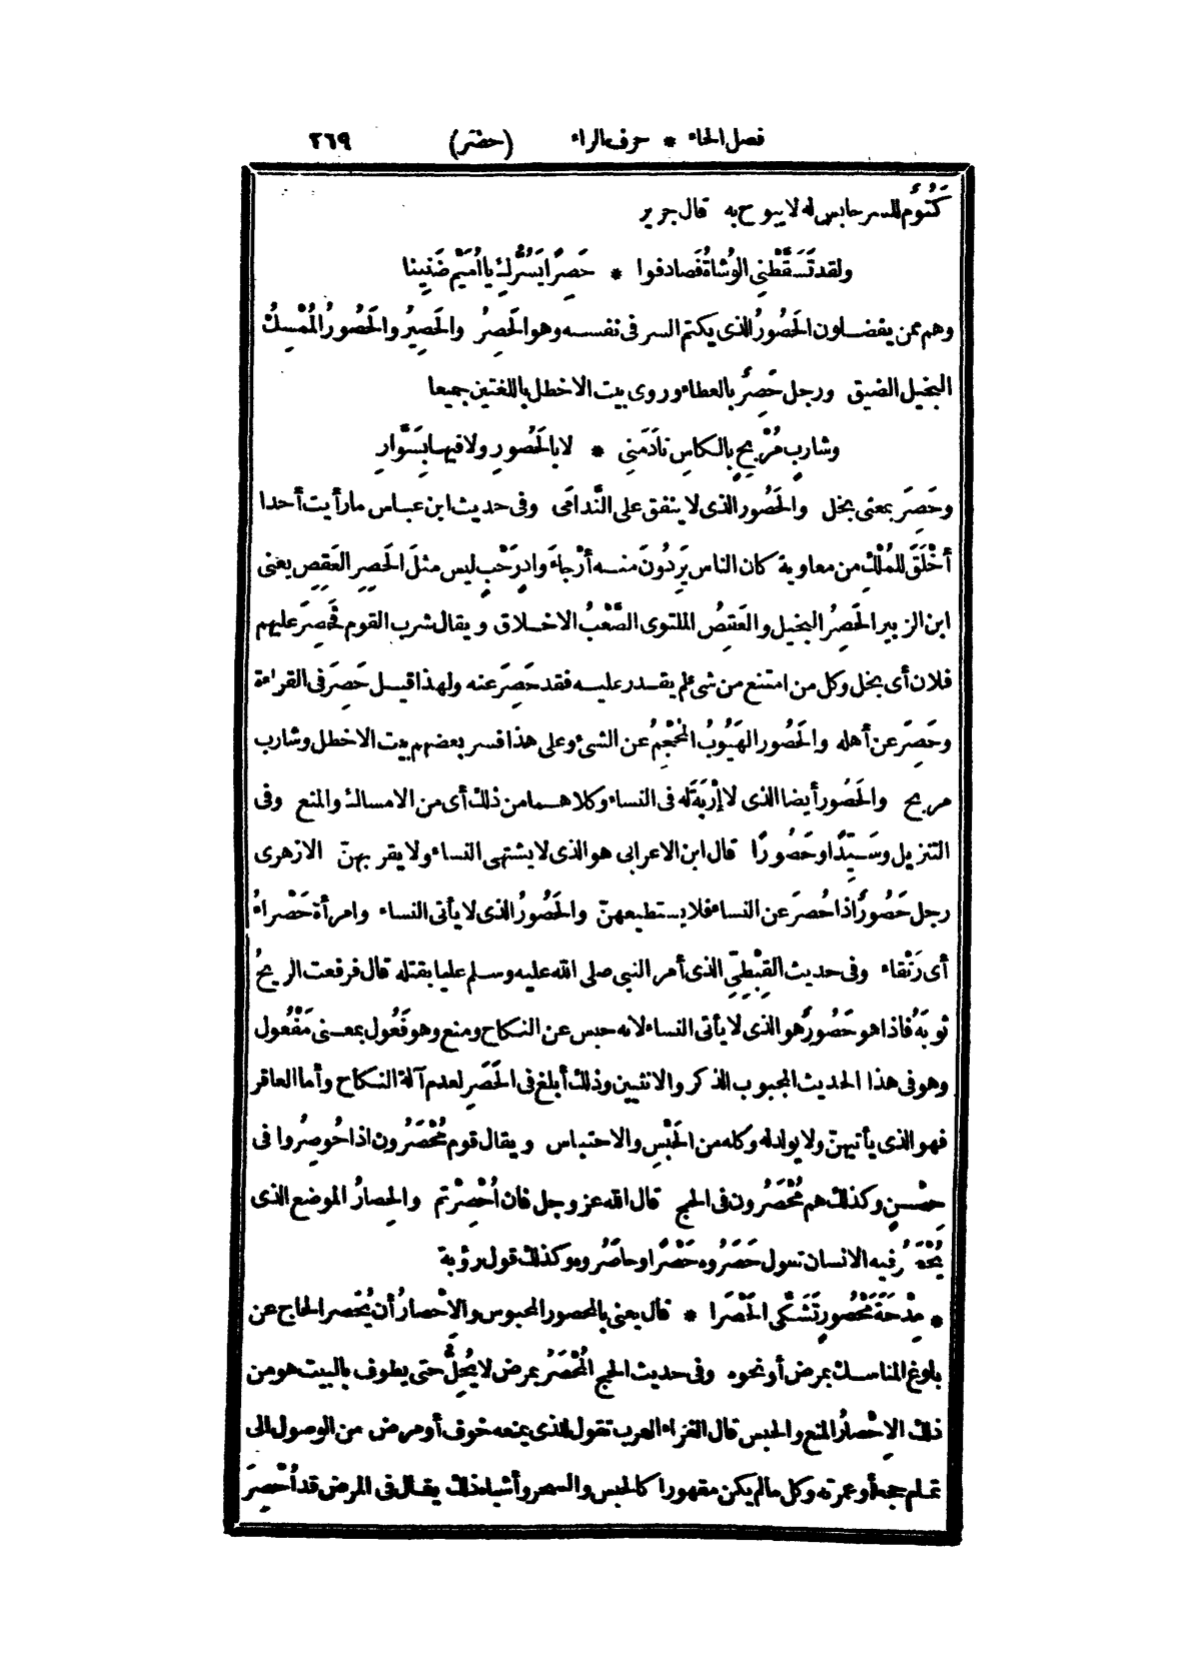 فصل الحاء * حرف الراء (حضر) ٢٦٩
كَتُومٌ للسر حابس له لا يبوح به قال جرير
ولقد تَسَقَّطَنِي الوُشاةُ فَصادفوا * حَصِرًا بَسُرِّكِ يا أُمَيْم ضَنِينا
وهم ممن يفضلون الحَصُورُ الذى يكتم السر فى نفسه وهو الحَصِرُ والحَصِيرُ والحَصُورُ المُمْسِكُ
البخيل الضيق ورجل حَصِرٌ بالعطاء وروى بيت الاخطل باللغتين جميعا
وشاربٍ مُرْبِحٍ بالكاسِ نادَمَنِى * لا بالحَصُورِ ولا فيها بِسَوَّارِ
وحَصِرَ بمعنى بخل والحَصُور الذى لا ينفق على النَّدامَى وفى حديث ابن عباس ما رأيت أحدا
أَخْلَقَ للمُلْكِ من معاوية كان الناس يَرِدُونَ منه أَرْجاءَ وادٍ رَحْبٍ ليس مثلَ الحَصِرِ العَقِصِ يعنى
ابن الزبير الحَصِرُ البخيل والعَقِصُ الملتوى الصَّعْبُ الاخلاق ويقال شرب القوم فَحَصِرَ عليهم
فلان أى بخل وكل من امتنع من شئ لم يقدر عليه فقد حَصِرَ عنه ولهذا قيل حَصِرَ فى القراءة
وحَصِرَ عن أهله والحَصُور الهَيُوبُ المُحْجِمُ عن الشئ وعلى هذا فسر بعضهم بيت الاخطل وشارب
مربح والحَصُور أيضا الذى لا إِرْبَةَ له فى النساء وكلاهما من ذلك أى من الامساك والمنع وفى
التنزيل وسَيِّدًا وحَصُورًا قال ابن الاعرابى هو الذى لا يشتهى النساء ولا يقربهنّ الازهرى
رجل حَصُورٌ اذا حُصِرَ عن النساء فلا يستطيعهنّ والحَصُورُ الذى لا يأتى النساء وامرأة حَصْراءُ
أى رَتْقاء وفى حديث القِبْطِىِّ الذى أمر النبى صلى الله عليه وسلم عليا بقتله قال فرفعت الريحُ
ثوبَهُ فاذا هو حَصُورٌ هو الذى لا يأتى النساء لانه حبس عن النكاح ومنع وهو فَعُول بمعنى مَفْعُول
وهو فى هذا الحديث المجبوب الذكر والانثيين وذلك أبلغ فى الحَصَرِ لعدم آلة النكاح وأما العاقر
فهو الذى يأتيهنّ ولا يولد له وكله من الحَبْسِ والاحتباس ويقال قوم مُحْصَرُون اذا حُوصِرُوا فى
حِصْنٍ وكذلك هم مُحْصَرُون فى الحج قال الله عز وجل فان أُحْصِرْتم والحِصارُ الموضع الذى
يُحْصَرُ فيه الانسان تقول حَصَرُوه حَصْرًا وحاصَرُوه وكذلك قول رؤبة
* مِدْحَةَ مَحْصُورٍ تَشَكَّى الحَصْرَا * قال يعنى بالمحصور المحبوس والاِحْصارُ أن يُحْصَر الحاج عن
بلوغ المناسك بمرض أو نحوه وفى حديث الحج المُحْصَرُ بمرض لا يُحِلُّ حتى يطوف بالبيت هو من
ذلك الاِحْصارُ المنع والحبس قال الفراء العرب تقول للذى يمنعه خوف أو مرض من الوصول الى
تمام حجه أو عمرته وكل ما لم يكن مقهورا كالحبس والسحر وأشباه ذلك يقال فى المرض قد أُحْصِرَ